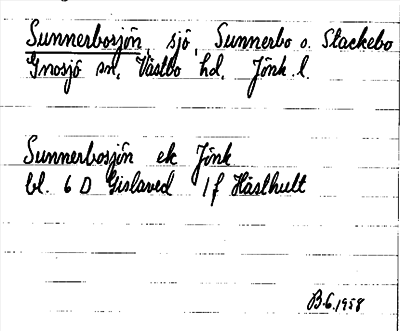 Sunnerbosjön, sjö, Sunnerbo o. Stackebo
Gnosjö sn, Västbo hd. Jönk. l.
Sunnerbosjön ek Jönk
bl. 6 D Gislaved 1f Hästhult
B.6.1958